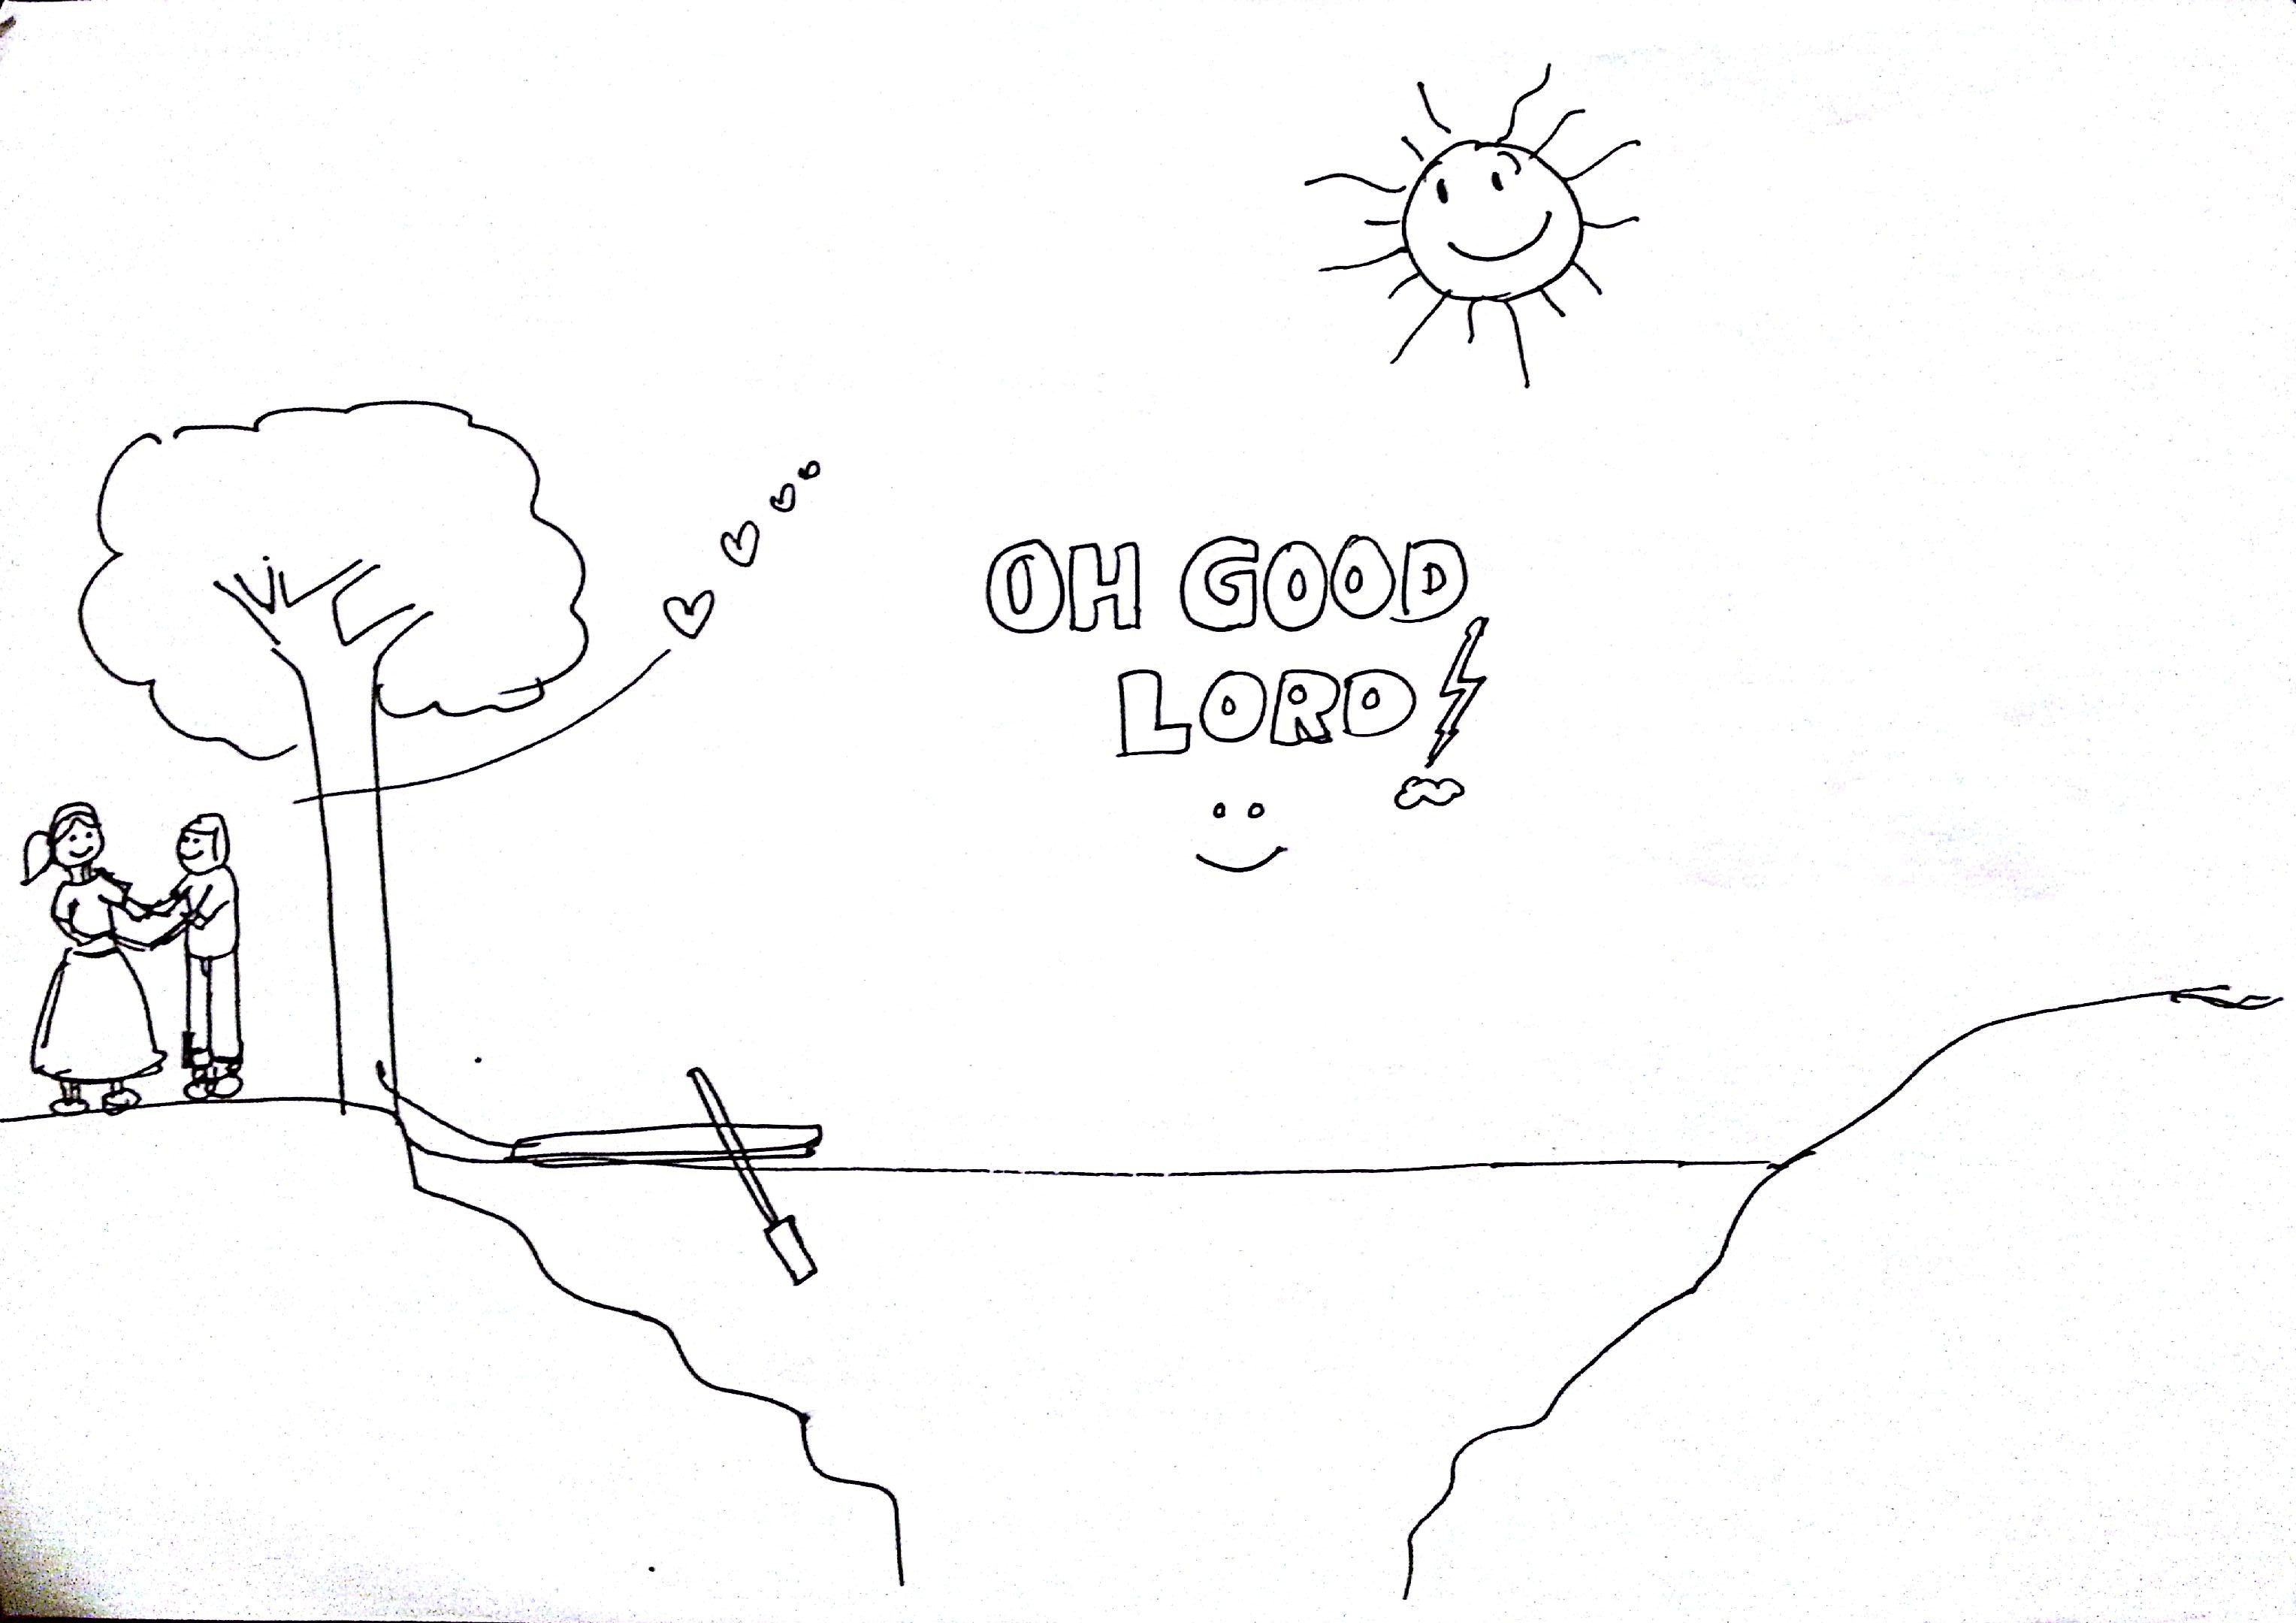 OH GOOD
LORD!